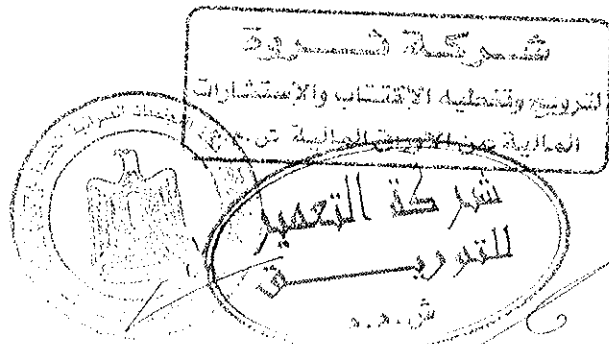 شركة ثروة
للترويج وتغطية الاكتتاب والاستشارات
المالية عن الاوراق المالية ش.م.م
شركة التعمير
للتوريق
ش.م.م